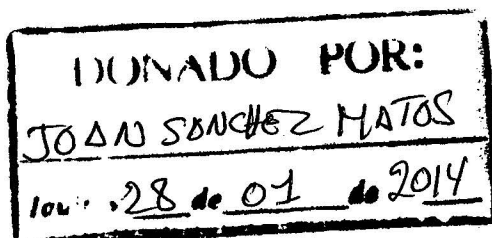 DONADO POR:
JOAN SANCHEZ MATOS
28 de 01 de 2014